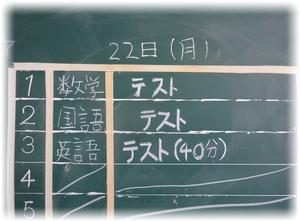 22日(月)
1 数学 テスト
2 国語 テスト
3 英語 テスト(40分)
4
5